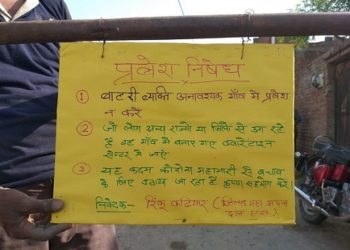 प्रवेश निषेध
① बाहरी व्यक्ति अनावश्यक गाँव में प्रवेश
न करें
② जो लोग अन्य राज्यों या जिलों से आ रहे
है वह गाँव में बनाए गए क्वारंटाइन
सेन्टर में जाएं
③ यह कदम कोरोना महामारी से बचाव
के लिए उठाया जा रहा है कृपया सहयोग करें!
निवेदक- रिंकू